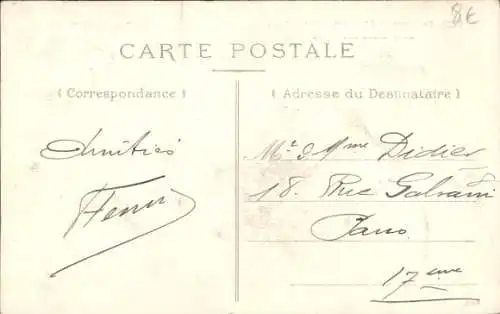 8€
CARTE POSTALE
(Correspondance)
(Adresse du Destinataire)
Amitiés
Mr & Mme Didier
18. Rue Galvani
Paris
17eme